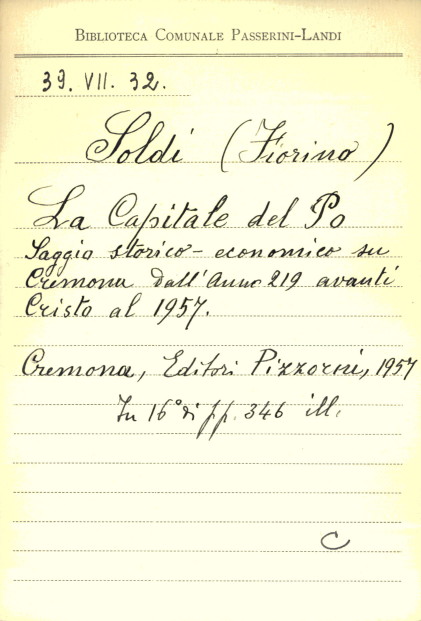 BIBLIOTECA COMUNALE PASSERINI-LANDI
39. VII. 32.
Soldi (Fiorino)
La Capitale del Po
Saggio storico-economico su
Cremona dall'Anno 219 avanti
Cristo al 1957.
Cremona, Editori Pizzorni, 1957
In 16° di pp. 346 ill.
C